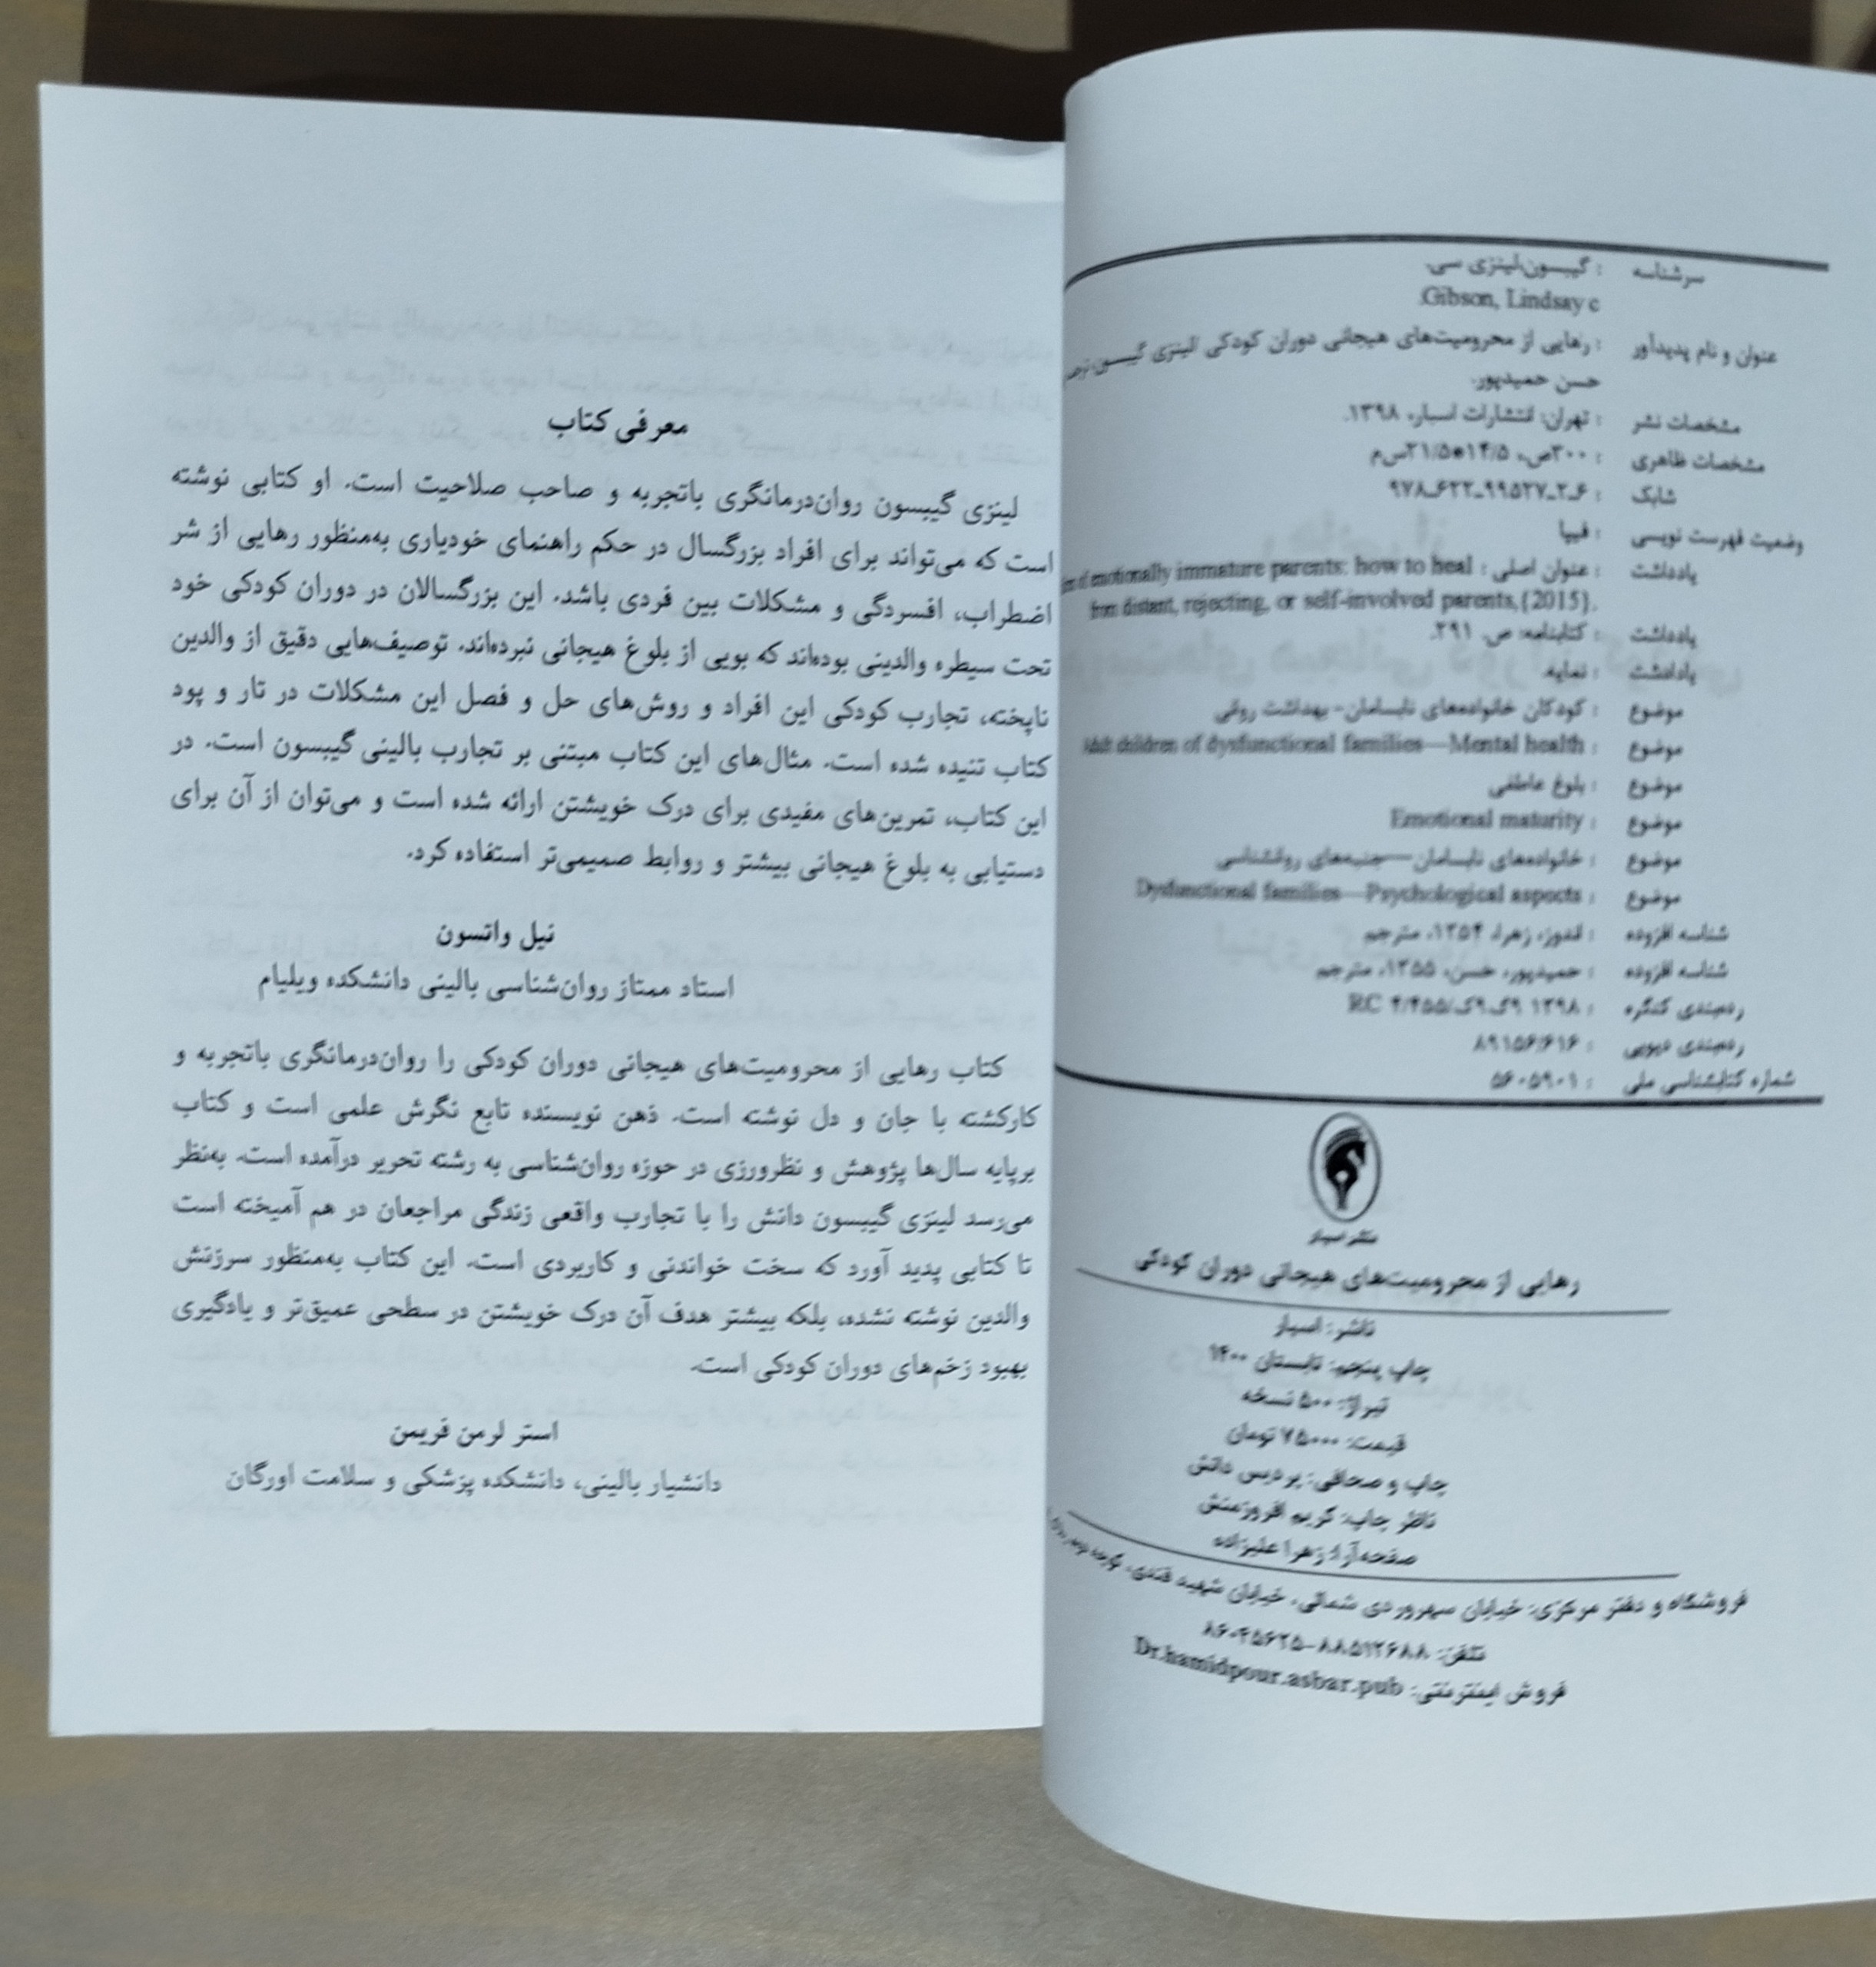 سرشناسه : گیبسون، لینزی سی.
Gibson, Lindsay c.
عنوان و نام پدیدآور : رهایی از محرومیت‌های هیجانی دوران کودکی /لینزی گیبسون؛
حسن حمیدپور.
مشخصات نشر : تهران: انتشارات اسبار، ۱۳۹۸.
مشخصات ظاهری : ۳۰۰ص، ۱۴/۵*۲۱/۵س‌م
شابک : ۹۷۸ـ۶۲۲ـ۹۹۵۲۷ـ۲ـ۶
وضعیت فهرست نویسی : فیپا
یادداشت : عنوان اصلی : emotionally immature parents: how to heal
from distant, rejecting, or self-involved parents,{2015}.
یادداشت : کتابنامه: ص. ۲۹۱.
یادداشت : نمایه.
موضوع : کودکان خانواده‌های نابسامان- بهداشت روانی
موضوع : Adult children of dysfunctional families—Mental health
موضوع : بلوغ عاطفی
موضوع : Emotional maturity
موضوع : خانواده‌های نابسامان—جنبه‌های روانشناسی
موضوع : Dysfunctional families—Psychological aspects
شناسه افزوده : اندوز، زهرا، ۱۳۵۴، مترجم
شناسه افزوده : حمیدپور، حسن، ۱۳۵۵، مترجم
رده‌بندی کنگره : ۱۳۹۸ ۹گ۹گ/۴۵۵/۴ RC
رده‌بندی دیویی : ۶۱۶/۸۹۱۵۶
شماره کتابشناسی ملی : ۵۶۰۵۹۰۱
نشر اسبار
رهایی از محرومیت‌های هیجانی دوران کودکی
ناشر: اسبار
چاپ پنجم: تابستان ۱۴۰۰
تیراژ: ۵۰۰ نسخه
قیمت: ۷۵۰۰۰ تومان
چاپ و صحافی: پردیس دانش
ناظر چاپ: کریم افروزمنش
صفحه‌آرا: زهرا علیزاده
فروشگاه و دفتر مرکزی: خیابان سهروردی شمالی، خیابان شهید قندی، کوچه
تلفن: ۸۸۵۱۲۶۸۸-۸۶۰۴۵۶۲۵
فروش اینترنتی: Dr.hamidpour.asbar.pub
معرفی کتاب
لینزی گیبسون روان‌درمانگری باتجربه و صاحب صلاحیت است. او کتابی نوشته
است که می‌تواند برای افراد بزرگسال در حکم راهنمای خودیاری به‌منظور رهایی از شر
اضطراب، افسردگی و مشکلات بین فردی باشد. این بزرگسالان در دوران کودکی خود
تحت سیطره والدینی بوده‌اند که بویی از بلوغ هیجانی نبرده‌اند. توصیف‌هایی دقیق از والدین
ناپخته، تجارب کودکی این افراد و روش‌های حل و فصل این مشکلات در تار و پود
کتاب تنیده شده است. مثال‌های این کتاب مبتنی بر تجارب بالینی گیبسون است. در
این کتاب، تمرین‌های مفیدی برای درک خویشتن ارائه شده است و می‌توان از آن برای
دستیابی به بلوغ هیجانی بیشتر و روابط صمیمی‌تر استفاده کرد.
نیل واتسون
استاد ممتاز روان‌شناسی بالینی دانشکده ویلیام
کتاب رهایی از محرومیت‌های هیجانی دوران کودکی را روان‌درمانگری باتجربه و
کارکشته با جان و دل نوشته است. ذهن نویسنده تابع نگرش علمی است و کتاب
برپایه سال‌ها پژوهش و نظرورزی در حوزه روان‌شناسی به رشته تحریر درآمده است. به‌نظر
می‌رسد لینزی گیبسون دانش را با تجارب واقعی زندگی مراجعان در هم آمیخته است
تا کتابی پدید آورد که سخت خواندنی و کاربردی است. این کتاب به‌منظور سرزنش
والدین نوشته نشده، بلکه بیشتر هدف آن درک خویشتن در سطحی عمیق‌تر و یادگیری
بهبود زخم‌های دوران کودکی است.
استر لرمن فریمن
دانشیار بالینی، دانشکده پزشکی و سلامت اورگان